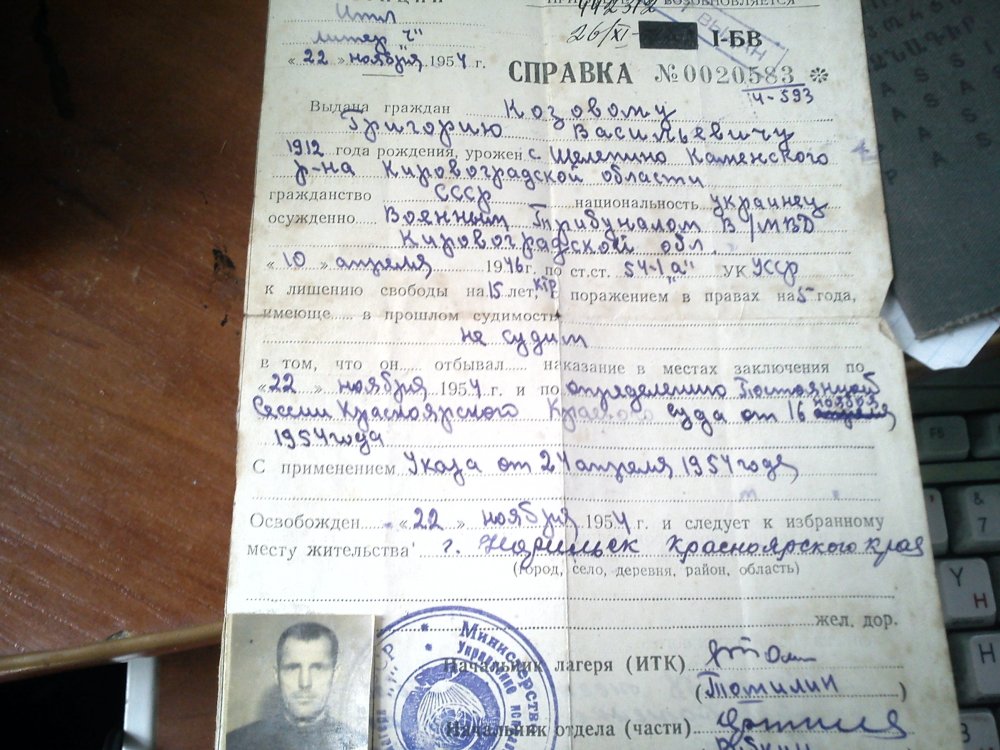 ВОЗОБНОВЛЯЕТСЯ
442312
Итл
литер "Ч"
26/XI-
I-БВ
« 22 » ноября 1954 г.
СПРАВКА №0020583
Ч-593
Выдана граждан Козовому
Григорию Васильевичу
1912 года рождения, урожен с. Шелепино Каменского
р-на Кировоградской области
гражданство СССР национальность украинец
осужденно Военным Трибуналом В/МВД
Кировоградской обл.
« 10 » апреля 1946 г. по ст.ст. 54-1 "а" УК УССР
к лишению свободы на 15 лет, ктр с поражением в правах на 5 года,
имеюще в прошлом судимость
не судим
в том, что он отбывал наказание в местах заключения по
« 22 » ноября 1954 г. и по определению Постоянной
Сессии Красноярского Краевого суда от 16 ноября
1954 года
С применением Указа от 24 апреля 1954 года
Освобожден « 22 » ноября 1954 г. и следует к избранному
месту жительства г. Норильск Красноярского края
(город, село, деревня, район, область)
жел. дор.
Министерство
Управление
Начальник лагеря (ИТК)
(Томилин)
Начальник отдела (части)
F5
&
7
Y
Н
H
B